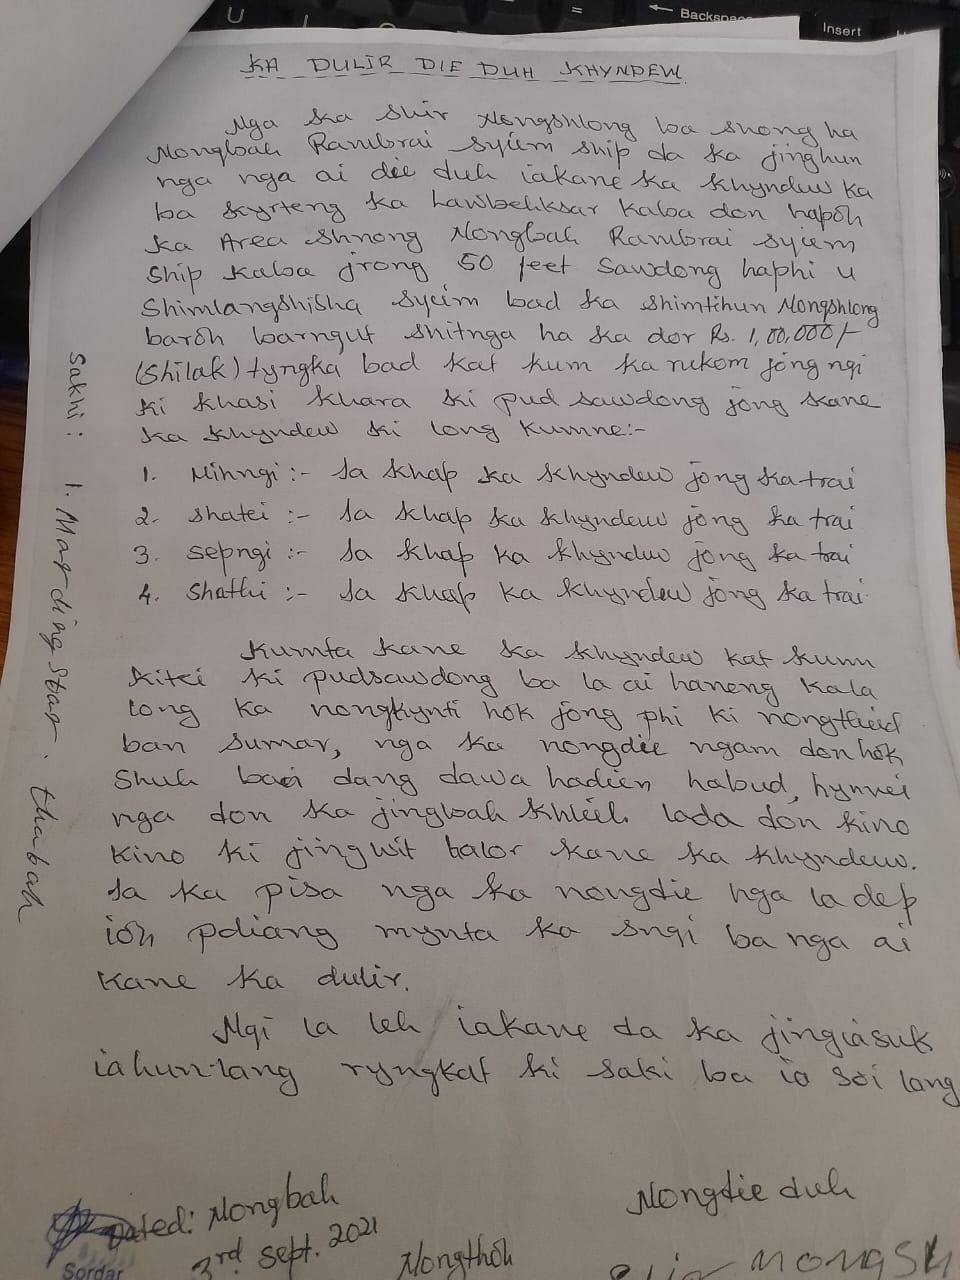 U
=
← Backspace
Insert
KA DULIR DIE DUH KHYNDEW.
Nga Ka Shir Nongshlong ba shong ha
Nongbah Rambrai Syiem Ship da ka jinghun
nga nga ai die duh iakane ka khyndew ka
ba kyrteng ka Lawbehksar kaba don hapoh
ka Area Shnong Nongbah Rambrai Syiem
Ship kaba jrong 50 feet Sawdong haphi u
Shimlangshisha Syiem bad ka Shimtihun Nongshlong
baroh barngut shitnga ha ka dor Rs. 1,00,000/-
(Shilak) tyngka bad kat kum ka rukom jong ngi
ki khasi khara ki pud sawdong jong kane
ka khyndew ki long kumne:-
1. Mihngi :- Ia khap ka khyndew jong ka trai
2. Shatei :- Ia khap ka khyndew jong ka trai
3. Sepngi :- Ia khap ka khyndew jong ka trai
4. Shathi :- Ia khap ka khyndew jong ka trai
Kumta kane ka khyndew kat kum
kitei ki pudsawdong ba la ai haneng kala
long ka nongkynti hok jong phi ki nongthied
ban sumar, nga ka nongdie ngam don hok
shuh ban dang dawa hadien habud, hynrei
nga don ka jingbah khlieh lada don kino
kino ki jingwit halor kane ka khyndew.
Ia ka pisa nga ka nongdie nga la dep
ioh pdiang mynta ka sngi ba nga ai
kane ka dulir.
Ngi la leh iakane da ka jingiasuk
iahunlang ryngkat ki saki ba ia soi lang
Sakhi: 1. Mardingstar. thabah
Dated: Nongbah
3rd Sept. 2021
Sordar
Nongthoh
Nongdie duh